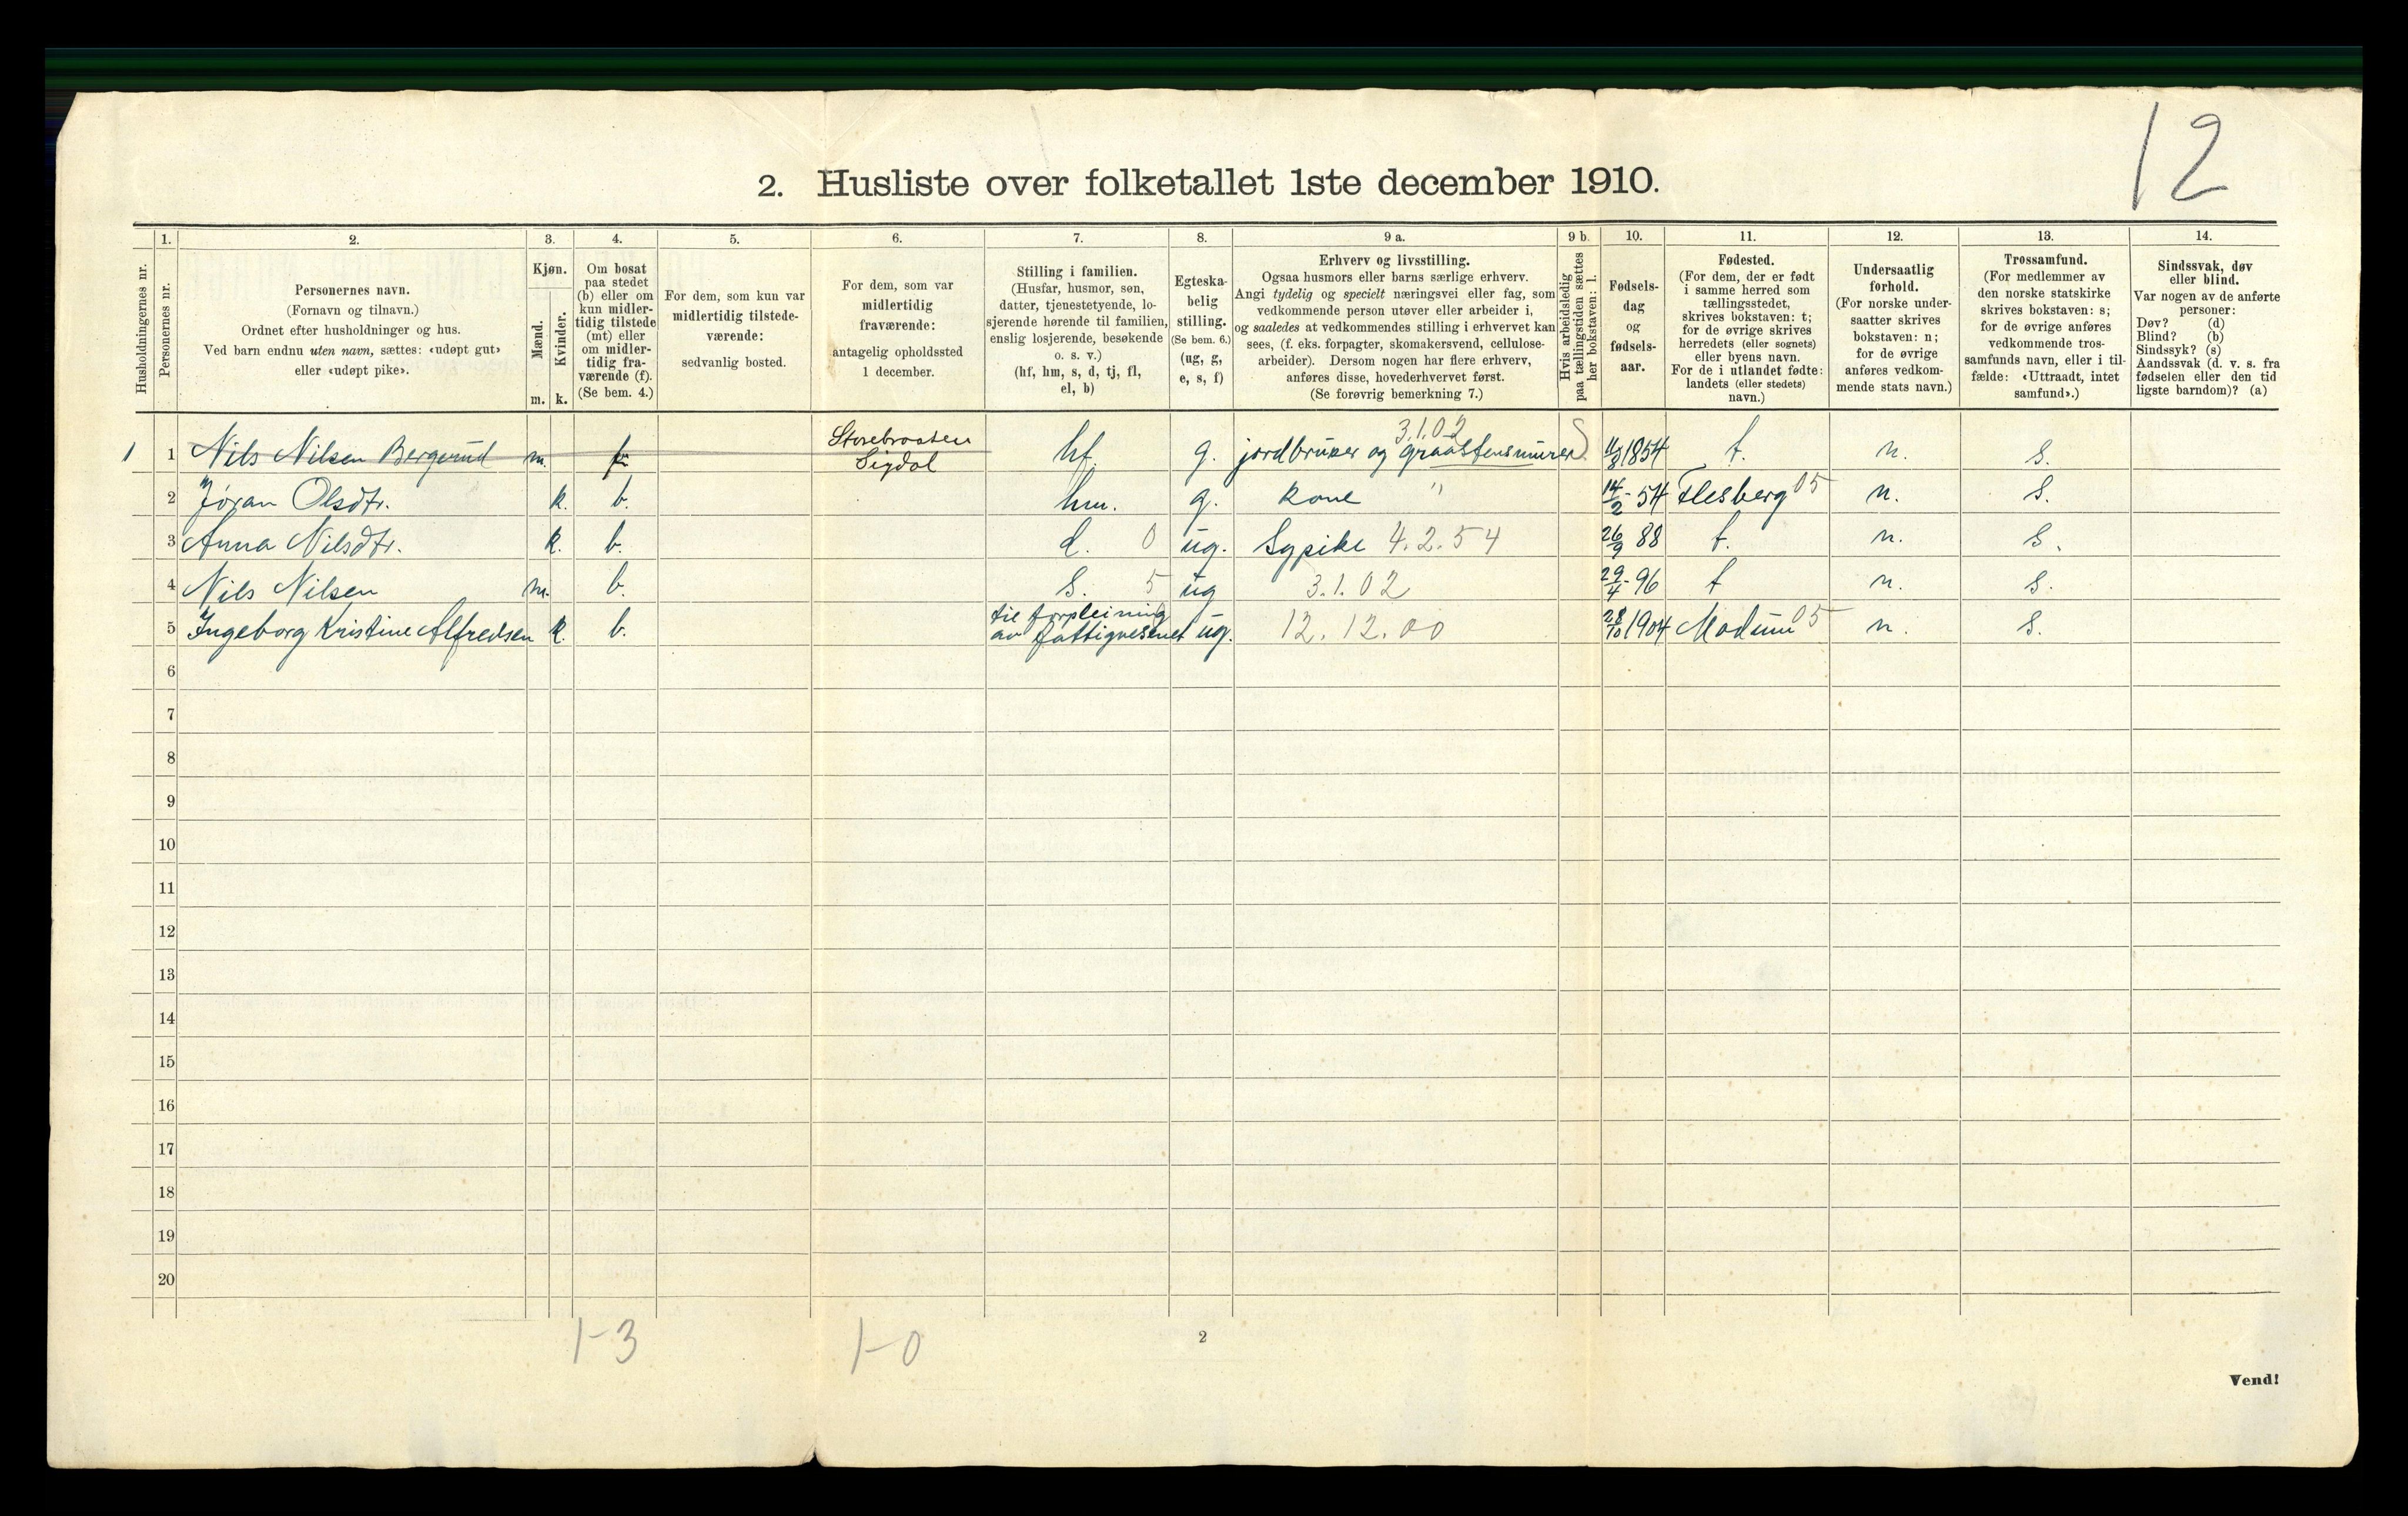 12
2. Husliste over folketallet 1ste december 1910.
Husholdningernes nr.
1.
Personernes nr.
2.
Personernes navn.
(Fornavn og tilnavn.)
Ordnet efter husholdninger og hus.
Ved barn endnu uten navn, sættes: «udøpt gut»
eller «udøpt pike».
3.
Kjøn.
Mænd.
Kvinder.
m. k.
4.
Om bosat
paa stedet
(b) eller om
kun midler-
tidig tilstede
(mt) eller
om midler-
tidig fra-
værende (f).
(Se bem. 4.)
5.
For dem, som kun var
midlertidig tilstede-
værende:
sedvanlig bosted.
6.
For dem, som var
midlertidig
fraværende:
antagelig opholdssted
1 december.
7.
Stilling i familien.
(Husfar, husmor, søn,
datter, tjenestetyende, lo-
sjerende hørende til familien,
enslig losjerende, besøkende
o. s. v.)
(hf, hm, s, d, tj, fl,
el, b)
8.
Egteska-
belig
stilling.
(Se bem. 6.)
(ug, g,
e, s, f)
9 a.
Erhverv og livsstilling.
Ogsaa husmors eller barns særlige erhverv.
Angi tydelig og specielt næringsvei eller fag, som
vedkommende person utøver eller arbeider i,
og saaledes at vedkommendes stilling i erhvervet kan
sees, (f. eks. forpagter, skomakersvend, cellulose-
arbeider). Dersom nogen har flere erhverv,
anføres disse, hovederhvervet først.
(Se forøvrig bemerkning 7.)
9 b.
Hvis arbeidsledig
paa tællingstiden sættes
her bokstaven: l.
10.
Fødsels-
dag
og
fødsels-
aar.
11.
Fødested.
(For dem, der er født
i samme herred som
tællingsstedet,
skrives bokstaven: t;
for de øvrige skrives
herredets (eller sognets)
eller byens navn.
For de i utlandet fødte:
landets (eller stedets)
navn.)
12.
Undersaatlig
forhold.
(For norske under-
saatter skrives
bokstaven: n;
for de øvrige
anføres vedkom-
mende stats navn.)
13.
Trossamfund.
(For medlemmer av
den norske statskirke
skrives bokstaven: s;
for de øvrige anføres
vedkommende tros-
samfunds navn, eller i til-
fælde: «Uttraadt, intet
samfund».)
14.
Sindssvak, døv
eller blind.
Var nogen av de anførte
personer:
Døv? (d)
Blind? (b)
Sindssyk? (s)
Aandssvak (d. v. s. fra
fødselen eller den tid
ligste barndom)? (a)
3.1.02
1 1 Nils Nilsen Bergerud m. f Storebraaten Sigdal hf. g. jordbruker og graastensmurer 1854 t. n. s.
2 Jøran Olsdtr. k. b. hm. g. kone " 14/2 - 54 Flesberg 05 n. s.
3 Anna Nilsdtr. k. b. d. 0 ug. Sypike 4.2.54 26/9 88 t. n. s.
4 Nils Nilsen m. b. s. 5 ug 3.1.02 29/4 - 96 t n. s.
5 Ingeborg Kristine Alfredsen k. b. til forpleining av fattigvesenet ug. 12.12.00 28/10 1904 Modum 05 n. s.
6
7
8
9
10
11
12
13
14
15
16
17
18
19
20
1-3 1-0
2
Vend!